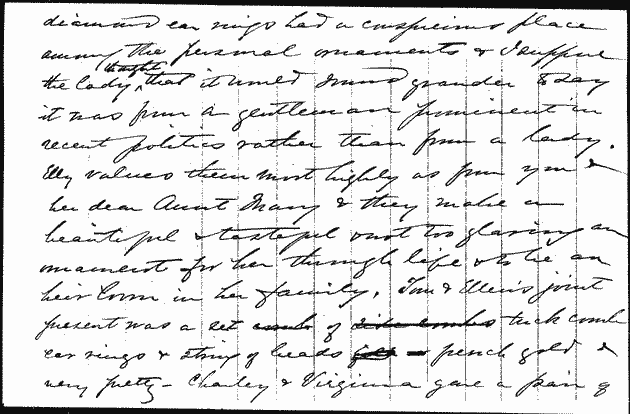 diamond ear rings had a conspicuous place
among the personal ornaments & I suppose
the lady thought that it would sound grander to say
it was from a gentleman prominent in
recent politics rather than from a lady.
Elly values them most highly as from you &
her dear Aunt Mary & they make a
beautiful & tasteful & not too glaring an
ornament for her through life & to be an
heir loom in her family. Tom & Ellen's joint
present was a set of tuck comb
ear rings & string of beads french gold &
very pretty - Charley & Virginia gave a pair of